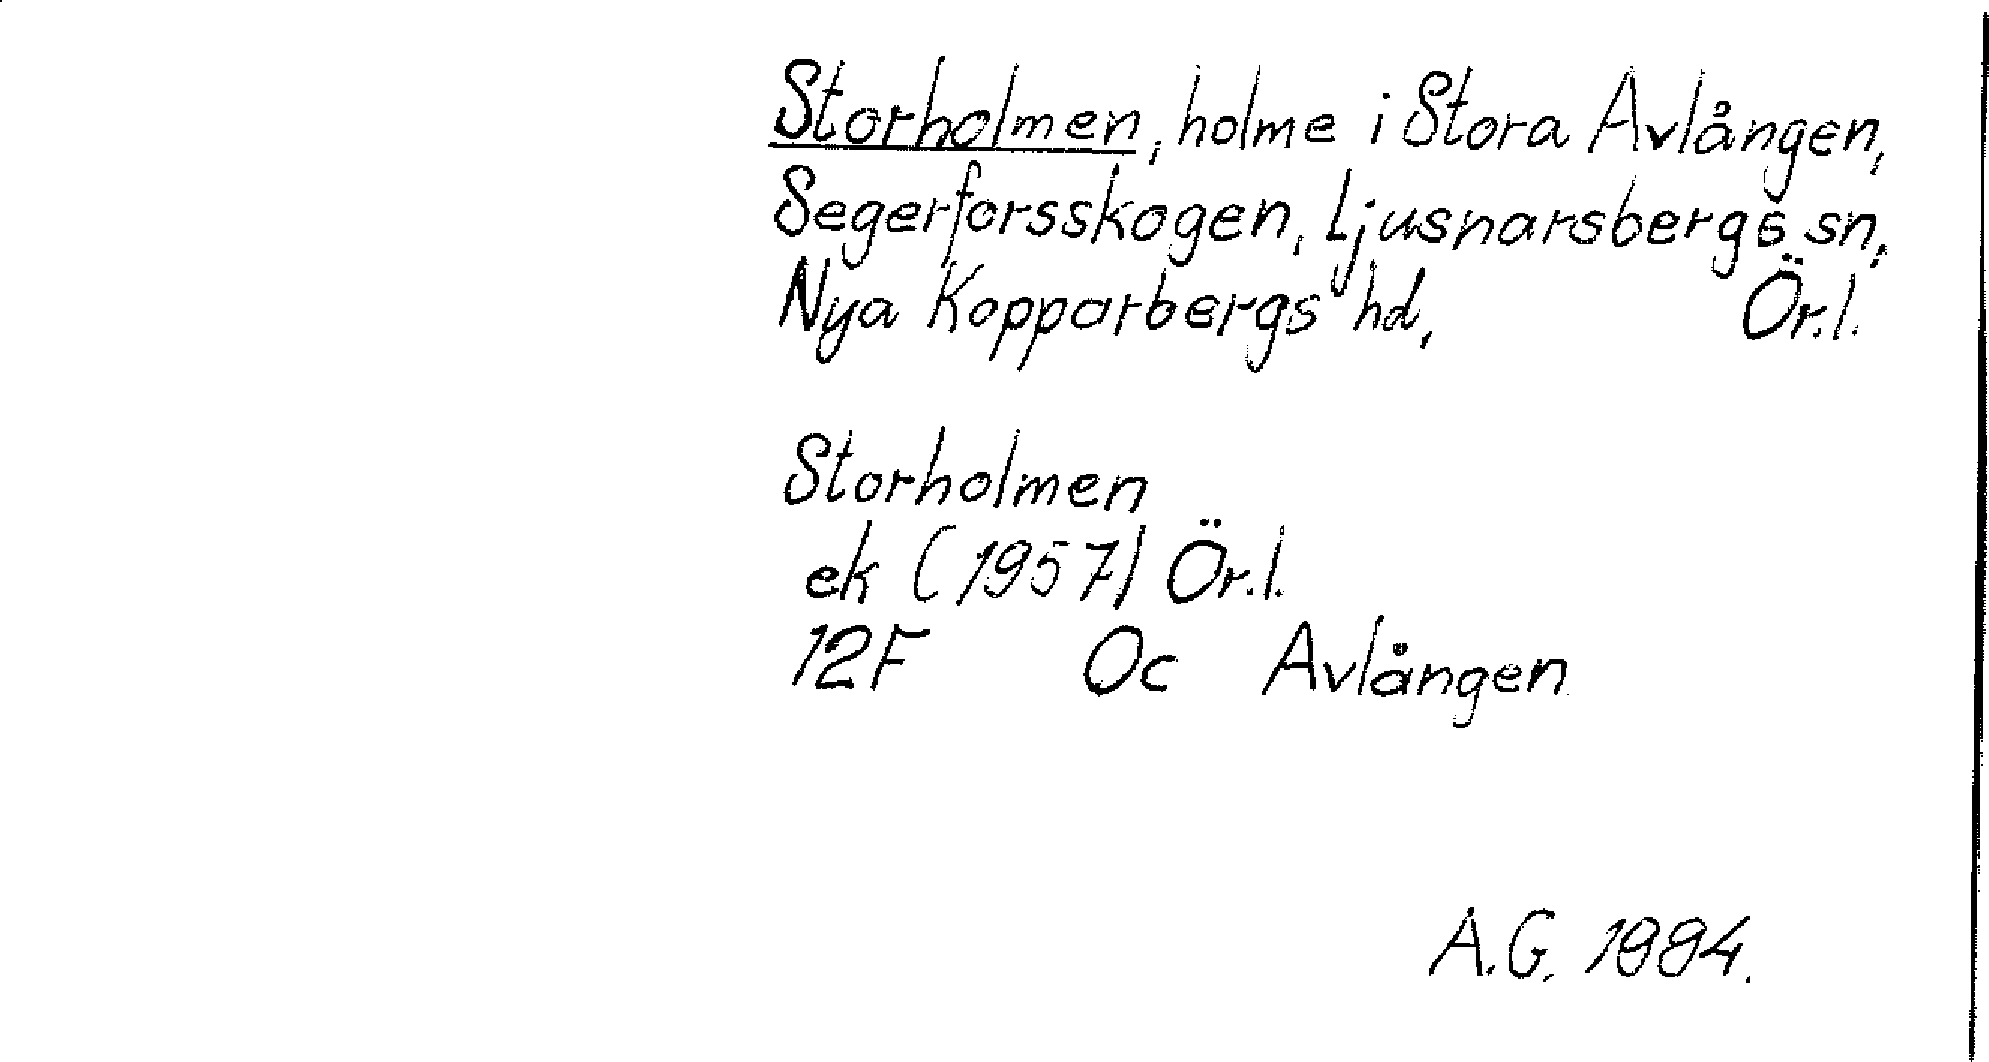 Storholmen, holme i Stora Avlången,
Segerforsskogen, Ljusnarsbergs sn,
Nya Kopparbergs hd, Ör.l.
Storholmen
ek (1957) Ör.l.
12F Oc Avlången
A.G. 1994.